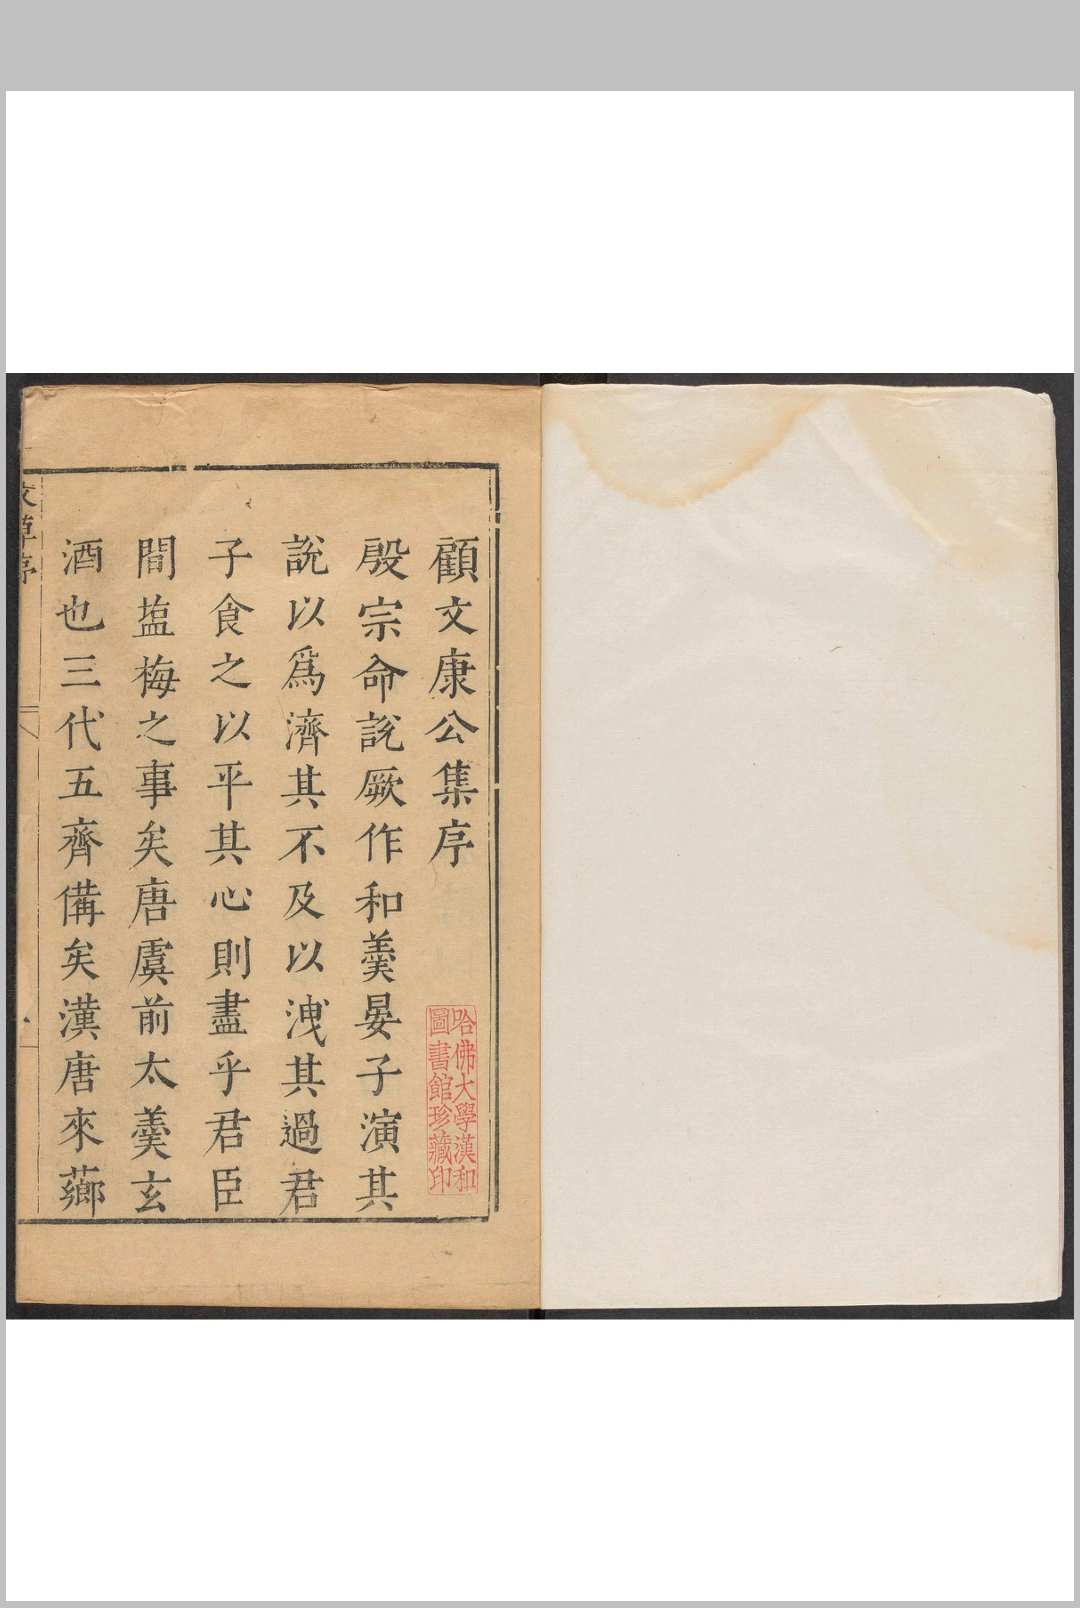 顧文康公集序
殷宗命說厥作和羹晏子演其
說以爲濟其不及以洩其過君
子食之以平其心則盡乎君臣
間塩梅之事矣唐虞前太羹玄
酒也三代五齊備矣漢唐來薌
哈佛大學漢和
圖書館珍藏印
文草序